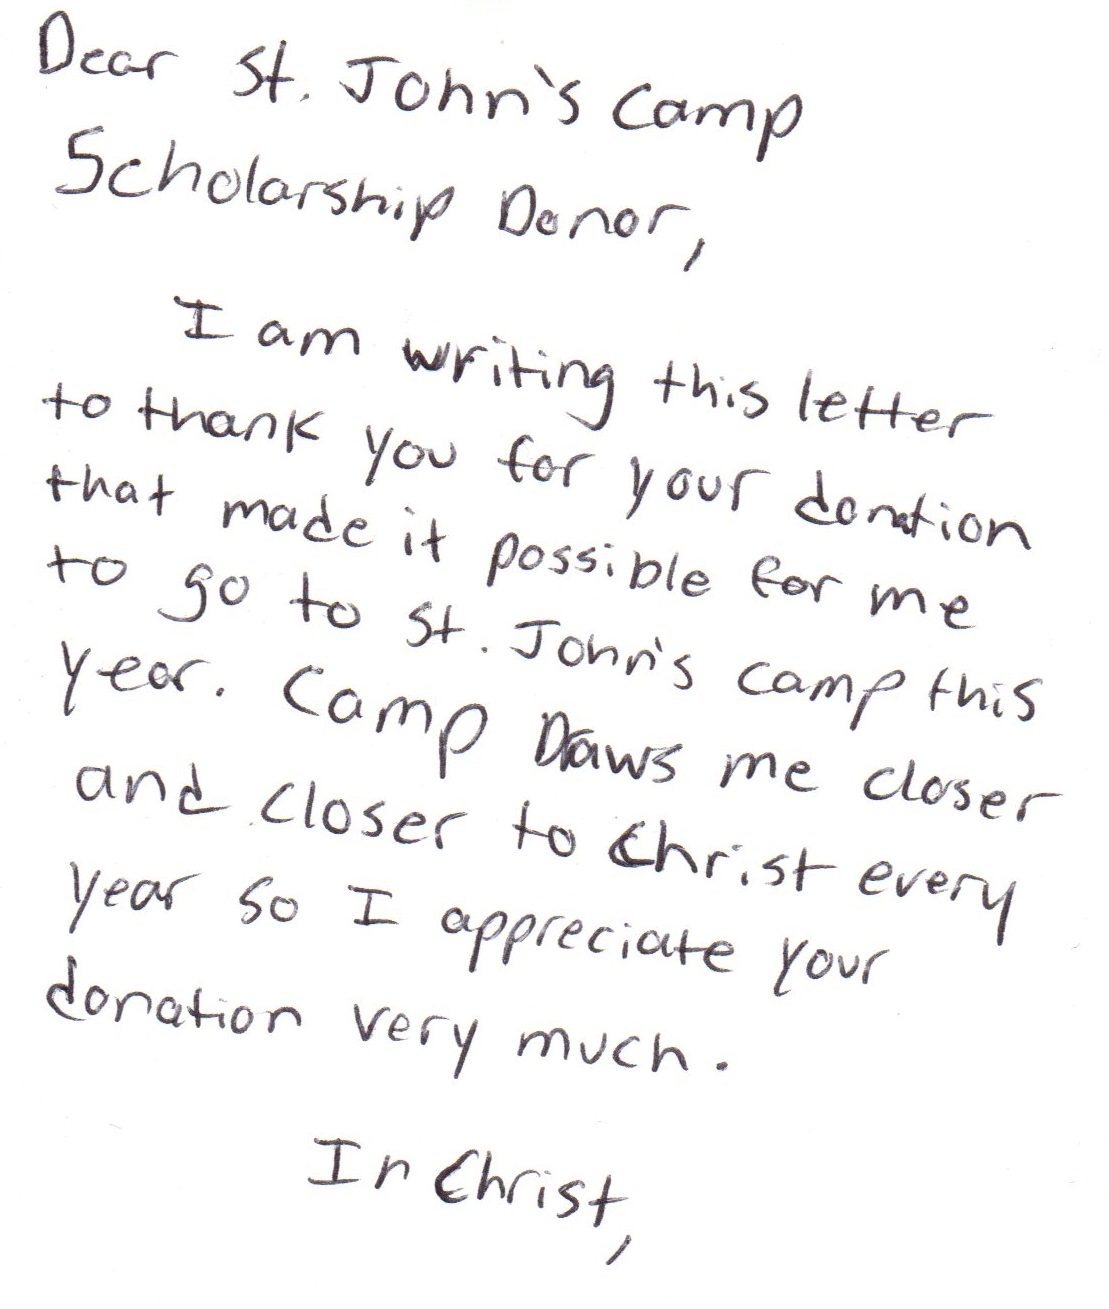 Dear St. John's Camp
Scholarship Donor,
I am writing this letter
to thank you for your donation
that made it possible for me
to go to St. John's camp this
year. Camp Draws me closer
and closer to Christ every
year so I appreciate your
donation very much.
In Christ,